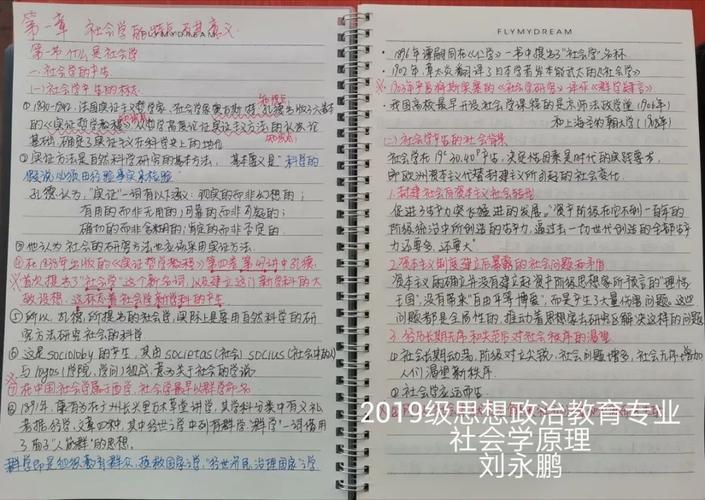 第一章 社会学的特点及其意义
FLYMYDREAM
第一节 什么是社会学
一、社会学的产生
(一) 社会学产生的标志
① 1830-1842,法国实证主义哲学家、社会学家奥古斯特·孔德出版6大卷
的《实证哲学教程》从哲学高度论证实证主义方法的认识论
基础,确定了实证主义在科学史上的地位
② 实证方法是自然科学研究的基本方法,基本意义是"科学的
假说必须由经验事实来检验"
孔德认为,"实证"一词有以下涵义:现实的而非幻想的;
有用的而非无用的;可靠的而非可疑的;
确切的而非含糊的;肯定的而非否定的
③ 他认为社会的研究方法也应该采用实证方法.
④ 在1838年出版的《实证哲学教程》第四卷第47讲中孔德
首次提出了"社会学"这个新名词,以及建立这门新学科的大
致设想,这标志着社会学新学科的产生
⑤ 所以,孔德所提出的社会学,实际上是要用自然科学的研
究方法研究社会的科学
⑥ 这是 sociology 的产生,其由 societas(社会) socius(社会中的人)
与 logos(学说,学问)组成,意为关于社会的学说
⑦ 在中国社会学属于西学,社会学最早以群学命名
⑧ 1891年,康有为在广州长兴里万木草堂讲学,其学科分类中有义理
考据经学、文章四种,其中经世之学中列有群学."群学"一词借用
了荀子"人能群"的思想.
群学即是组织教育群众,拯救国家之学,"经世济民,治理国家"之学
FLYMYDREAM
· 1896年谭嗣同在《仁学》一书中提出了"社会学"名称
· 1902年,章太炎翻译了日本学者岸本能武太的《社会学》
※ 1903年严复将斯宾塞的《社会学研究》译作《群学肄言》
· 我国高校最早开设社会学课程的是京师法政学堂(1906年)
和上海圣约翰大学(1908年)
(二) 社会学产生的社会背景
社会学在19世纪30、40年代产生,决定性因素是时代的实践要求,
即欧洲资本主义代替封建主义所引起的社会变化.
1. 封建社会向资本主义社会转化
促进生产力突飞猛进的发展."资产阶级在它不到一百年的
阶级统治中所创造的生产力,通过去一切世代创造的全部生产
力还要多,还要大"
2. 资本主义制度建立后暴露的社会问题和矛盾
资本主义的确立并没有建立起资产阶级思想家所预言的"理性
王国",没有带来"自由平等博爱",而是产生了大量伤害问题,这些
问题都是全局性的,推动着思想家去研究及解决这样的问题
3. 经历长期无序和失范后对社会秩序的渴望
① 社会长期动荡,阶级对立尖锐,社会问题增多,社会无序增加
人们渴望新秩序.
② 社会学应运而生
2019级思想政治教育专业
社会学原理
刘永鹏